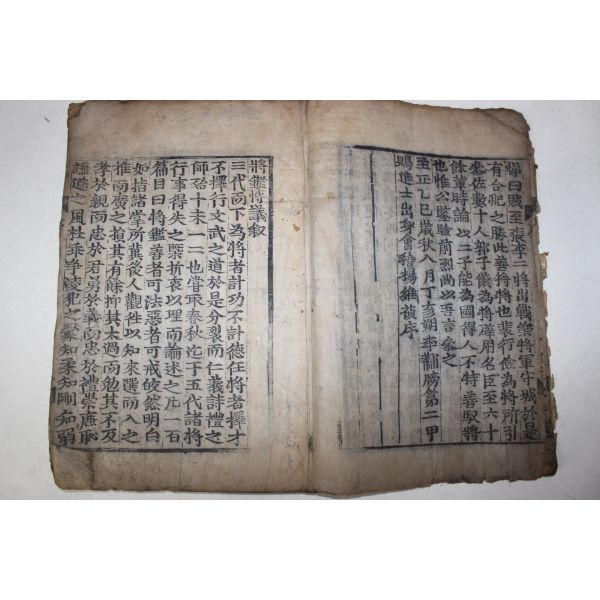 幣曰賊至張李二將出戰樂將軍守城於是
有合肥之勝此善將將也裴行儉為將所引
偏佐數十人郭子儀為將磾用名臣至六十
餘軍時論以二子能為國得人不特善馭將
也惟公鑒驗前烈尚以吾言參之
至正乙巳歲秋八月丁亥朔李黼膀第二甲
賜進士出身會稽楊維禎序
將鑑博議叙
三代而下為將者計功不計德任將者擇才
不擇行文武之道於是分裂而仁義詩禮之
師殆十未一二也嘗取春秋迄于五代諸將
行事得失之槩折衷以理而論述之凡一百
篇目曰將鑑善者可法惡者可戒皎然明白
如指諸掌所冀後人觀徃以知來選而入之
推而廣之損其有餘抑其太過而勉其不及
孝於親而忠於君勇於義而忠於禮崇廉恥
謙遜之風杜乘爭陵犯之釁知柔知剛知弱